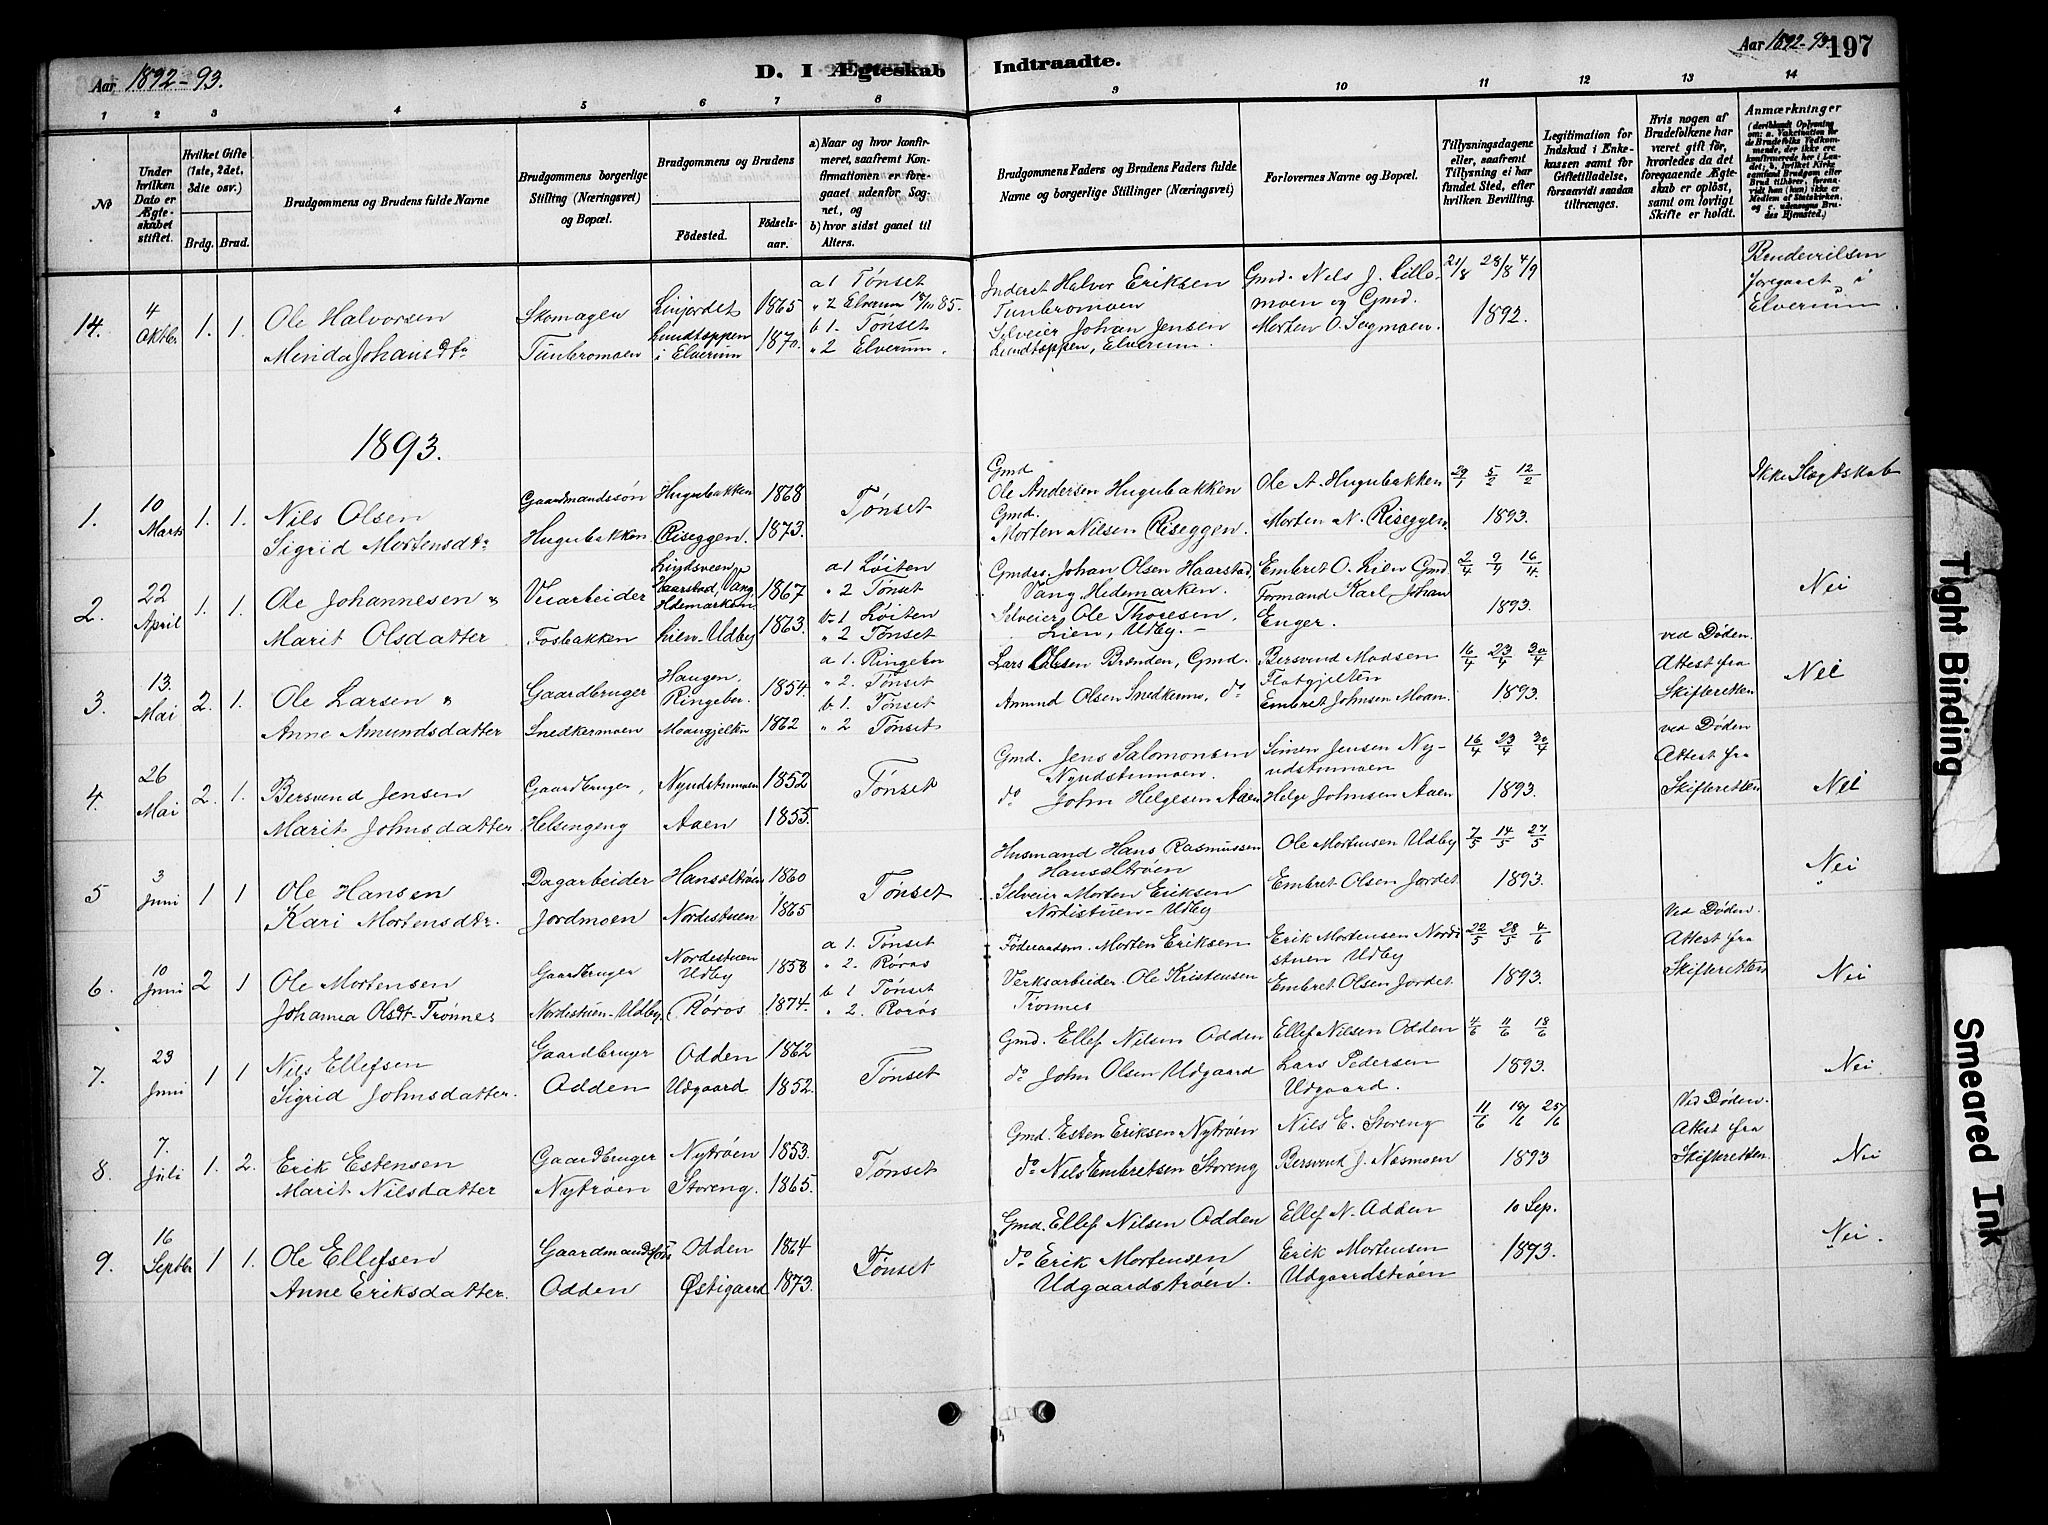 Aar 1892-93.
D. I Ægteskab Indtraadte.
Aar 1892-93. 197
1 2 3 4 5 6 7 8 9 10 11 12 13 14
No
Under hvilken Dato er Ægteskabet stiftet.
Hvilket Gifte (1ste, 2det, 3die osv.)
Brdg. Brud.
Brudgommens og Brudens fulde Navne
Brudgommens borgerlige Stilling (Næringsvei) og Bopæl.
Brudgommens og Brudens
Födested. Födselsaar.
a) Naar og hvor konfirmeret, saafremt Konfirmationen er foregaaet udenfor Sognet, og
b) hvor sidst gaaet til Alters.
Brudgommens Faders og Brudens Faders fulde Navne og borgerlige Stillinger (Næringsvei)
Forlovernes Navne og Bopæl.
Tillysningsdagene eller, saafremt Tillysning ei har fundet Sted, efter hvilken Bevilling.
Legitimation for Indskud i Enkekassen samt for Giftetilladelse, forsaavidt saadan tiltrænges.
Hvis nogen af Brudefolkene har været gift för, hvorledes da det foregaaende Ægteskab er oplöst, samt om lovligt Skifte er holdt.
Anmærkninger
(deriblandt Oplysning om: a. Vakcination for de Brudefolks Vedkommende, der ikke ere konfirmerede her i Landet; b. hvilket Kirkesamfund Brudgom eller Brud tilhörer, forsaavidt han (hun) ikke er Medlem af Statskirken, og c. udensogns Brudes Hjemsted.)
14. 4 Oktbr 1. 1. Ole Halvorsen
Minda Johansdtr
Skomager
Tunbromoen
Linjordet 1865
Lundtoppen i Elverum 1870.
a 1 Tønset
" 2 Elverum 18/10 85.
b 1. Tønset
" 2 Elverum.
Inderst Halvor Eriksen
Tunbromoen
Selveier Johan Jensen
Lundtoppen, Elverum.
Gmd. Nils J. Lillemoen og Gmd.
Morten O. Sagmoen.
21/8 28/8 4/9
1892.
foregaaet i
Elverum
1893.
1. 10 Marts 1. 1. Nils Olsen
Sigrid Mortensdtr
Gaardmandssøn
Hugubakken
Hugubakken 1868
Riseggen. 1873.
Tønset
Gmd
Ole Andersen Hugubakken
Gmd.
Morten Nilsen Riseggen.
Ole A. Hugubakken
Morten N. Riseggen.
29/1 5/2 12/2
1893.
Ikke Slægtskab
2. 22 April 1. 1. Ole Johannesen "
Marit Olsdatter
Veiarbeider
Fosbakken
Haarstad, Vang
Hdemarken 1867
Lien Udby 1863.
a 1 Løiten
" 2 Tønset
b 1 Løiten
" 2 Tønset
Gmdss. Johan Olsen Haarstad,
Vang Hedemarken.
Selveier Ole Thoresen,
Lien, Udby. -
Embret O. Lien Gmd
Formand Karl Johan
Enger.
2/4 9/4 16/4
1893.
Nei
3. 13. Mai 2. 1. Ole Larsen "
Anne Amundsdatter
Gaardbruger
Snedkermoen
Haugen,
Ringebo. 1854
Moangjelten 1862
a 1. Ringebo
" 2. Tønset
b 1. Tønset
" 2 Tønset
Lars Olsen Brænden, Gmd.
Amund Olsen Snedkermo, do
Bersvend Madsen
Flatgjelten
Embret Johnsen Moan.
16/4 23/4 30/4
1893.
ved Døden.
Attest fra
Skifteretten
Nei
4. 26 Mai 2. 1. Bersvend Jensen
Marit Johnsdatter
Gaardbruger,
Helsengeng
Nyudstumoen 1852
Aaen 1855.
Tønset
Gmd. Jens Salomonsen
Nyudstumoen.
do John Helgesen Aaen
Simen Jensen Nyudstumoen
Helge Johnsen Aaen
16/4 23/4 30/4
1893.
ved Døden
Attest fra
Skifteretten
Nei
5 3 Juni 1 1 Ole Hansen
Kari Mortensdtr.
Dagarbeider
Jordmoen
Hanseltrøen 1860
Nordistuen 1865
Tønset
Husmand Hans Rasmussen
Hanseltrøen
Selveier Morten Eriksen
Nordistuen - Udby
Ole Mortensen Udby
Embret Olsen Jordet
7/5 14/5 27/5
1893.
Nei
6. 10 Juni 2 1 Ole Mortensen
Johanna Olsdt. Trønnes
Gaardbruger
Nordistuen - Udby.
Nordestuen
Udby 1858
Røros 1874.
a 1. Tønset
" 2. Røros
b 1 Tønset
" 2. Røros
Føderaadsm. Morten Eriksen
Verksarbeider Ole Kristensen
Trønnes
Erik Mortensen Nordistuen Udby
Embret Olsen Jordet
22/5 28/5 4/6
1893.
Ved Døden.
Attest fra
Skifteretten
Nei
7. 23 Juni 1 1 Nils Ellefsen
Sigrid Johnsdatter.
Gaardbruger
Odden
Odden 1862
Udgaard 1852.
Tønset
Gmd. Ellef Nilsen Odden
do John Olsen Udgaard
Ellef Nilsen Odden
Lars Pedersen
Udgaard.
4/6 11/6 18/6
1893.
Nei.
8. 7. Juli 1. 2. Erik Estensen
Marit Nilsdatter
Gaardbruger
Nytrøen
Nytrøen 1853.
Storeng. 1865.
Tønset
Gmd. Esten Eriksen Nytrøen
do Nils Embretsen Storeng
Nils E. Storeng
Bersvend J. Næsmoen
11/6 18/6 25/6
1893
Ved Døden.
Attest fra
Skifteretten.
Nei
9. 16 Septbr 1 1. Ole Ellefsen
Anne Eriksdatter.
Gaardmandssøn
Odden
Odden 1864
Østigaard 1873.
Tønset
Gmd. Ellef Nilsen Odden
do Erik Mortensen
Udgaardstrøen.
Ellef N. Odden
Erik Mortensen
Udgaardstrøen
10 Sep.
1893.
Nei.
Tight Binding
Smeared Ink